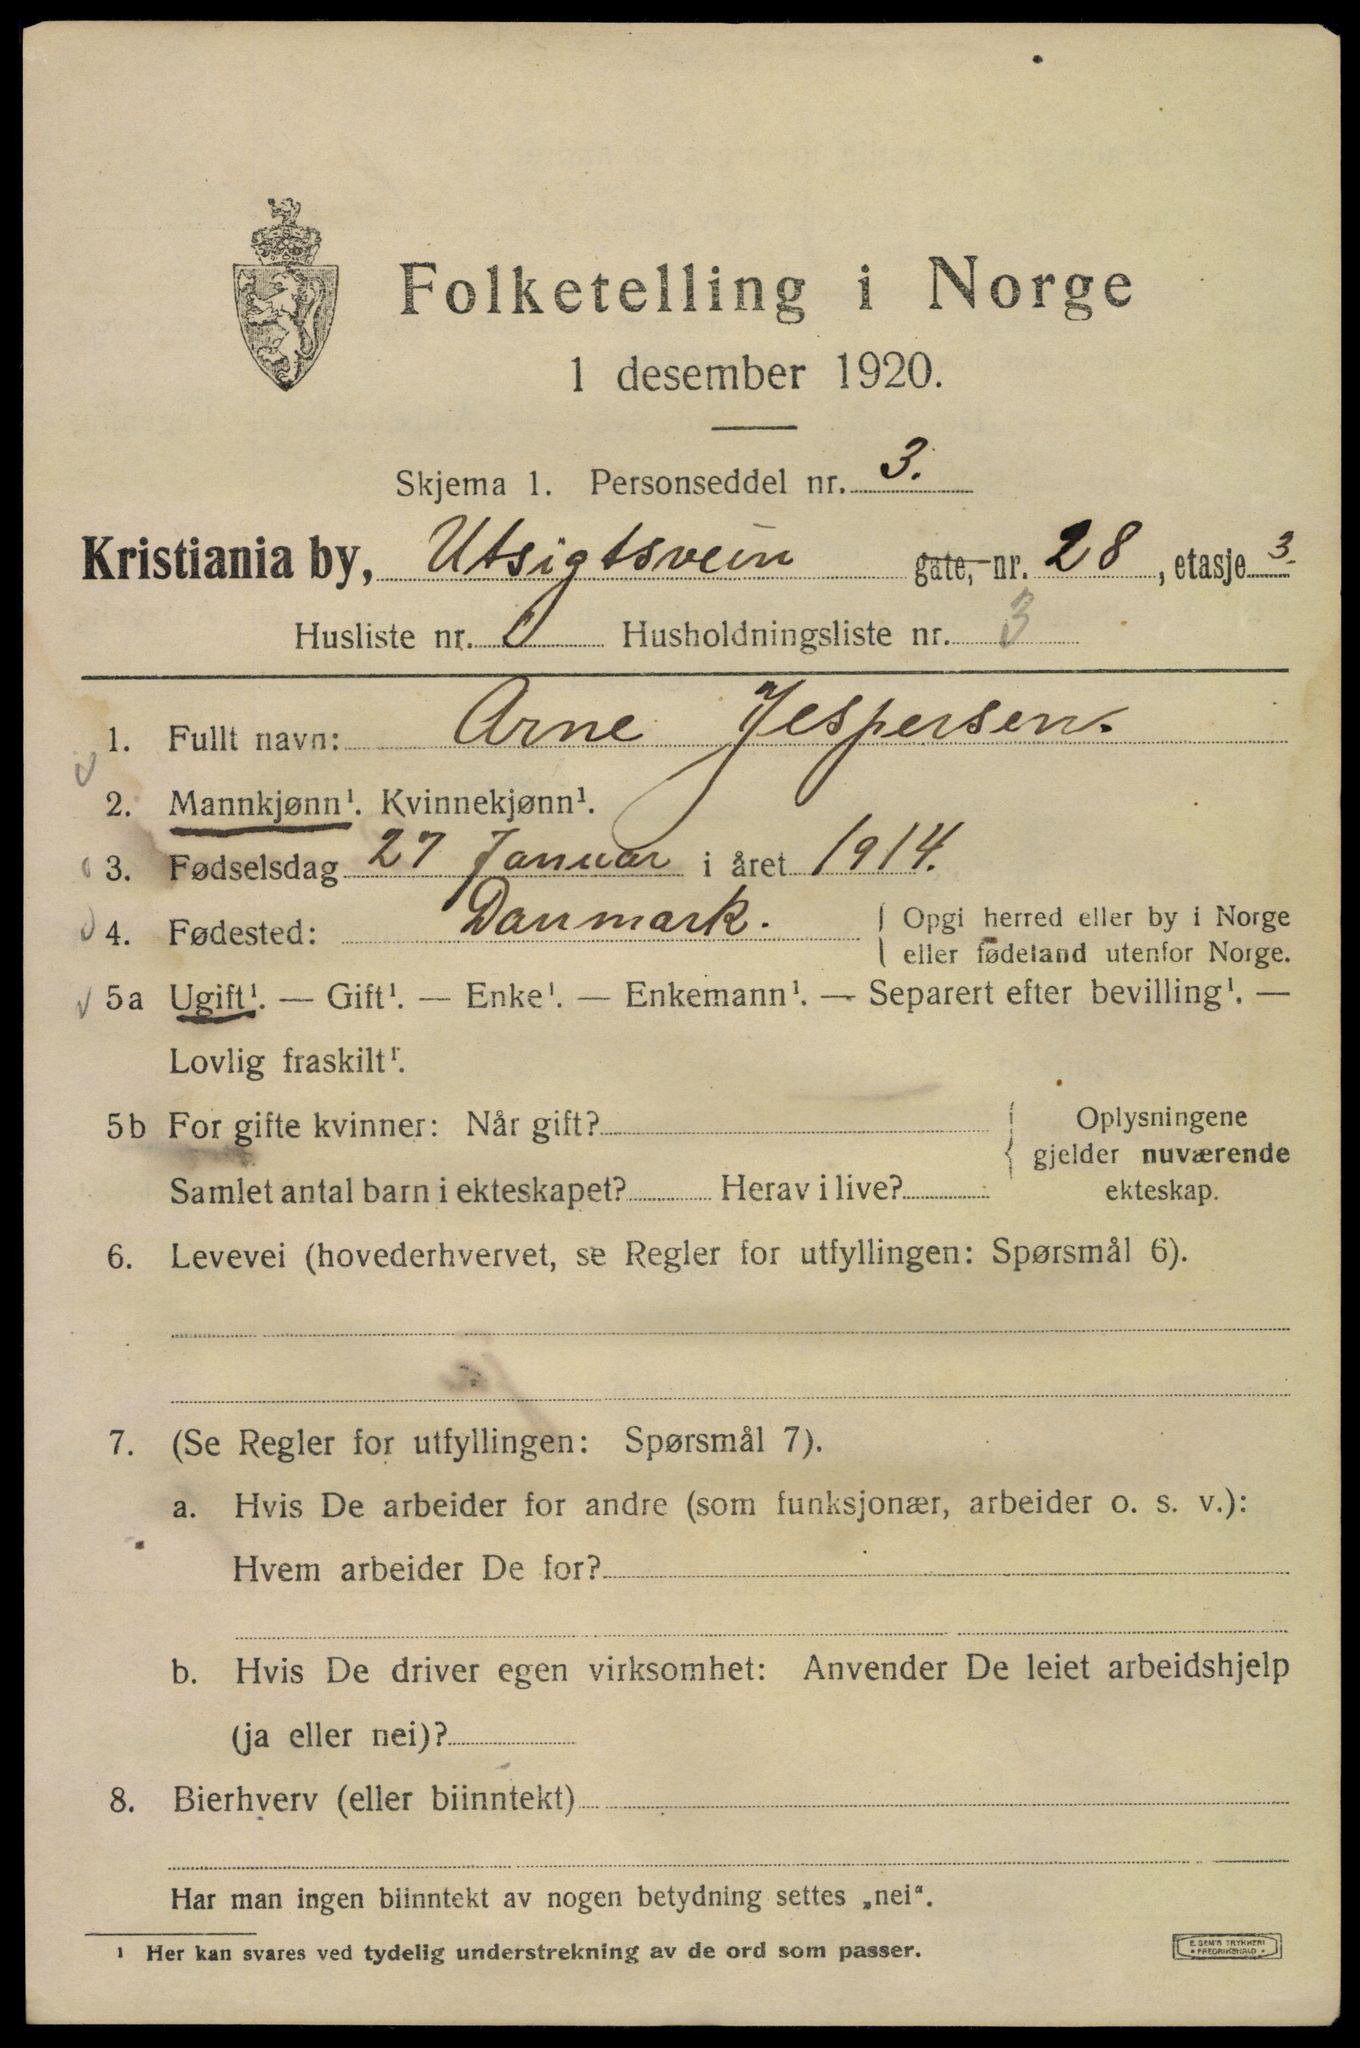 Folketelling i Norge
1 desember 1920.
Skjema 1. Personseddel nr. 3.
Kristiania by, Utsigtsveien gate, nr. 28, etasje 3.
Husliste nr. Husholdningsliste nr. 3
1. Fullt navn: Arne Jespersen.
2. Mannkjønn¹. Kvinnekjønn¹.
3. Fødselsdag 27 Januar i året 1914.
4. Fødested: Danmark. { Opgi herred eller by i Norge
eller fødeland utenfor Norge.
5a Ugift¹. — Gift¹. — Enke¹. — Enkemann¹. — Separert efter bevilling¹. —
Lovlig fraskilt¹.
5b For gifte kvinner: Når gift?
Samlet antal barn i ekteskapet? Herav i live?
{ Oplysningene
gjelder nuværende
ekteskap.
6. Levevei (hovederhvervet, se Regler for utfyllingen: Spørsmål 6).
7. (Se Regler for utfyllingen: Spørsmål 7).
a. Hvis De arbeider for andre (som funksjonær, arbeider o. s. v.):
Hvem arbeider De for?
b. Hvis De driver egen virksomhet: Anvender De leiet arbeidshjelp
(ja eller nei)?
8. Bierhverv (eller biinntekt)
Har man ingen biinntekt av nogen betydning settes „nei“.
¹ Her kan svares ved tydelig understrekning av de ord som passer.
E. SEM'S TRYKKERI
• FREDRIKSHALD •